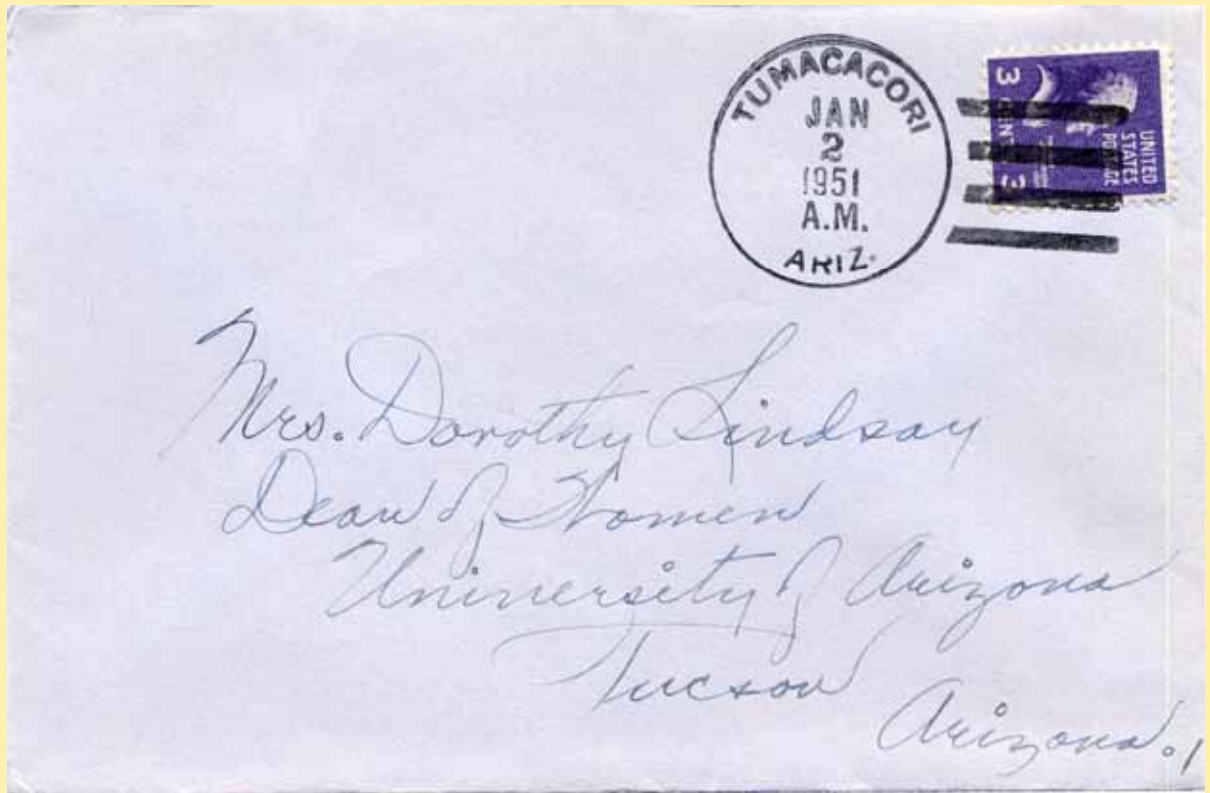 TUMACACORI
JAN
2
1951
A.M.
ARIZ.
UNITED
STATES
POSTAGE
3 CENTS 3
Mrs. Dorothy Lindsay
Dean of Women
University of Arizona
Tucson
Arizona.